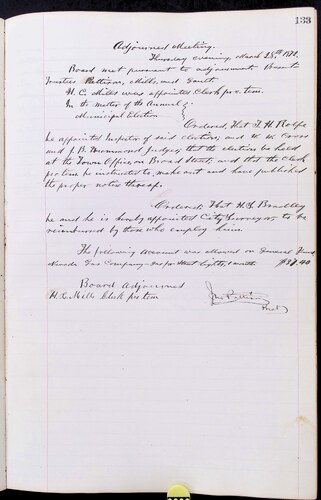 133
Adjourned Meeting.
Thursday evening, March 28th, 1878.
Board met pursuant to adjournment. Present
Trustees Pattison, Mills, and Gault
H. C. Mills was appointed Clerk pro. tem.
In the matter of the Annual
Municipal Election
Ordered, That T. H. Rolfe
be appointed Inspector of said election, and W. W. Cross
and J. B. Judges, that the election be held
at the Town Office, on Broad Street, and that the Clerk
pro tem be instructed to make out and have published
the proper notice thereof.
Ordered, That H. S. Bradley
be and he is hereby appointed City Surveyor, to be
reimbursed by those who employ him.
The following account was allowed on General Fund
Nevada Gas Company - Gas for Street Lights, 1 month $37.40
Board Adjourned
H. C. Mills Clerk pro tem
Jno. Pattison
Prest